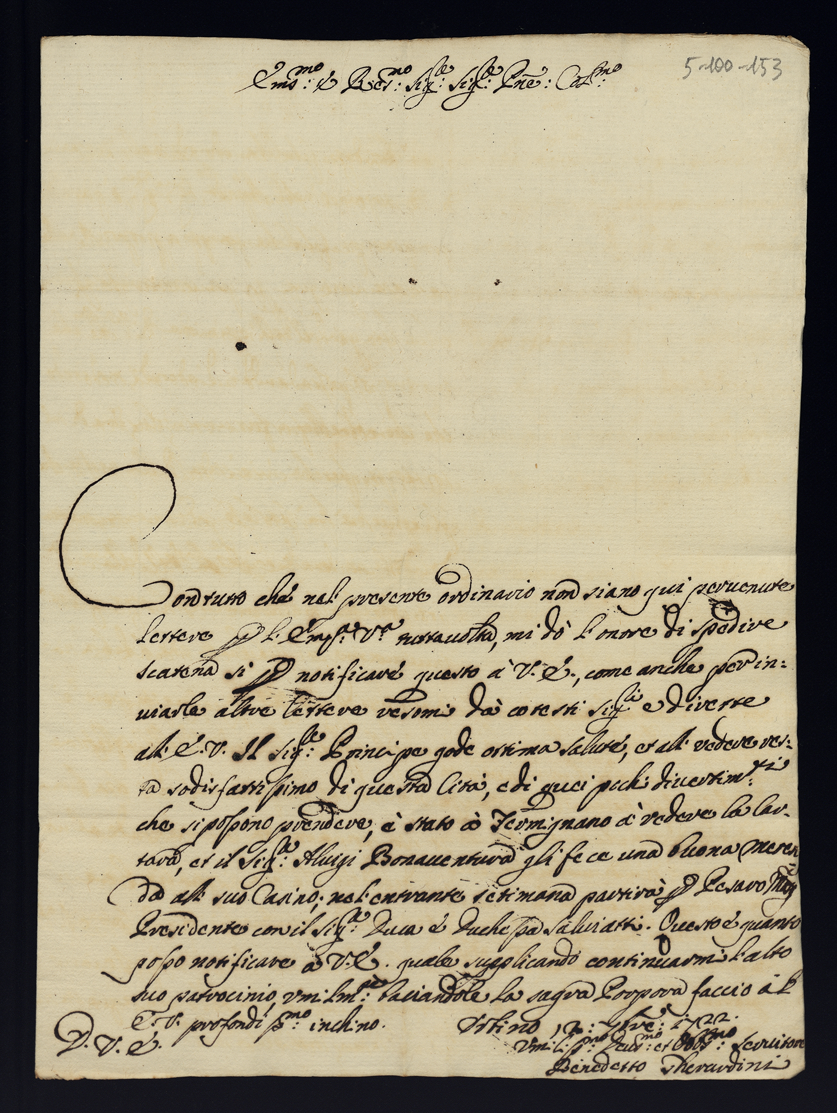 5-100-153
Em̃o: è Rev:mo Sig:re Sig:re Pñe: Col:mo
Con tutto che nel presente ordinario non siano qui pervenute
lettere p l'Em: V:ra tuttavolta, mi dò l'onore di spedire
si p notificare questo à V. E., come anche per in-
viarle altre lettere da cotesti Sig:ri e dirette
all' E. V. Il Sig:re Principe gode ottima salute, et all vedere res-
ta sodisfattissimo di questa Cità, e di quei pochi divertim:ti
che si possono prendere, è stato à Fermignano à vedere la
et il Sig:re Aluigi Bonaventura gli fece una buona meren-
da all suo Casino; nel entrante setimana partirà p Pesaro Mõg
Presidente con il Sig:re Duca è Duchessa Salviatti. Questo è quanto
posso notificare à V. E. quale supplicando continuarmi l'alto
suo patrocinio, umilm:te baciandole la sagra Porpora faccio à l'
E. V. profondiss:mo inchino. Urbino 1722.
D. V. E.
Umiliss:mo Deu:mo et Obb:mo Servitore
Benedetto Gherardini